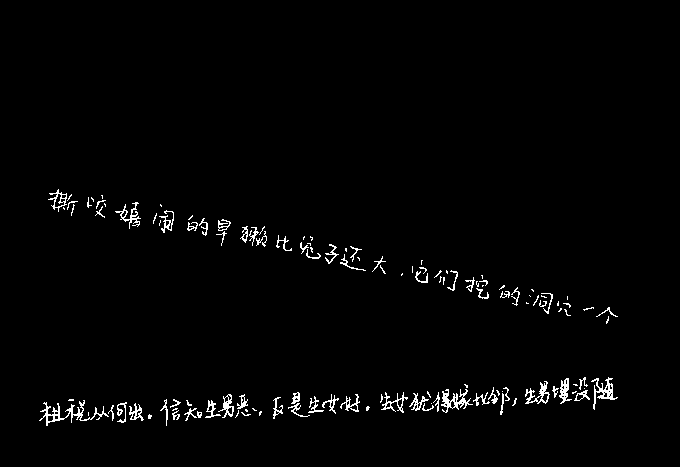 撕咬嬉闹的旱獭比兔子还大，它们挖的洞穴一个
租税从何出。信知生男恶，反是生女好。生女犹得嫁比邻，生男埋没随